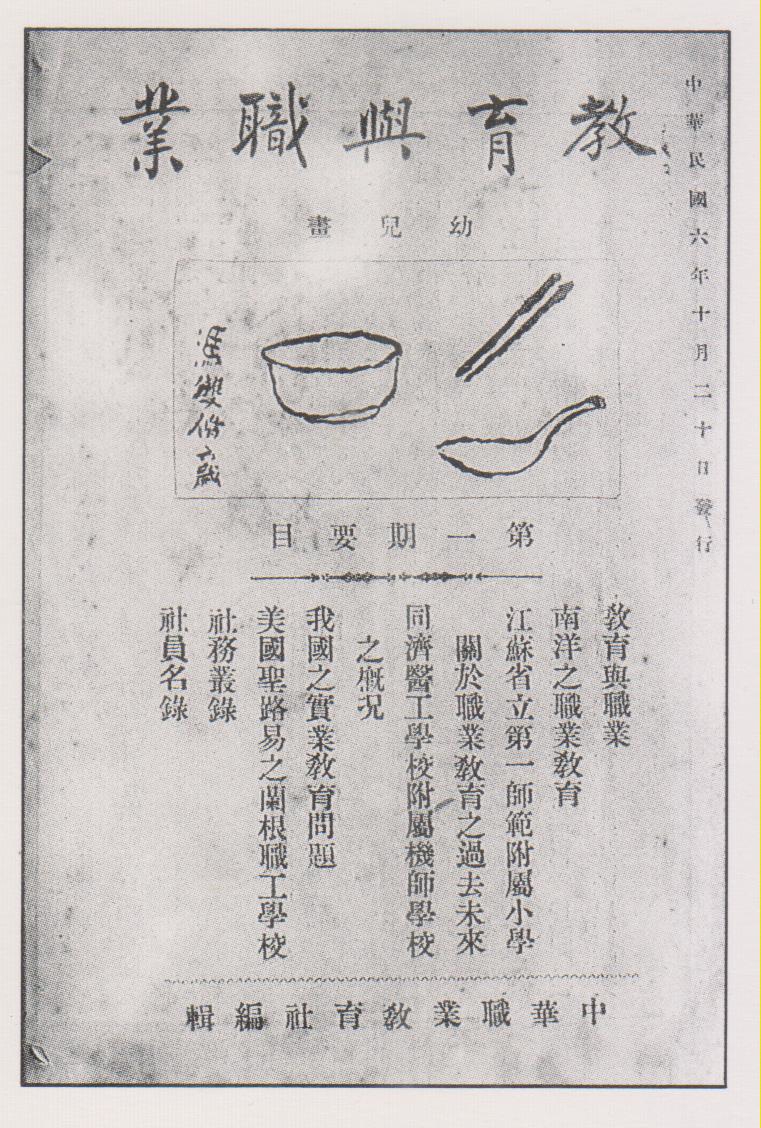 中華民國六年十月二十日發行
教育與職業
幼兒畫
馮雙修六歲
第一期要目
教育與職業
南洋之職業教育
江蘇省立第一師範附屬小學
關於職業教育之過去未來
同濟醫工學校附屬機師學校
之概況
我國之實業教育問題
美國聖路易之蘭根職工學校
社務叢錄
社員名錄
中華職業教育社編輯